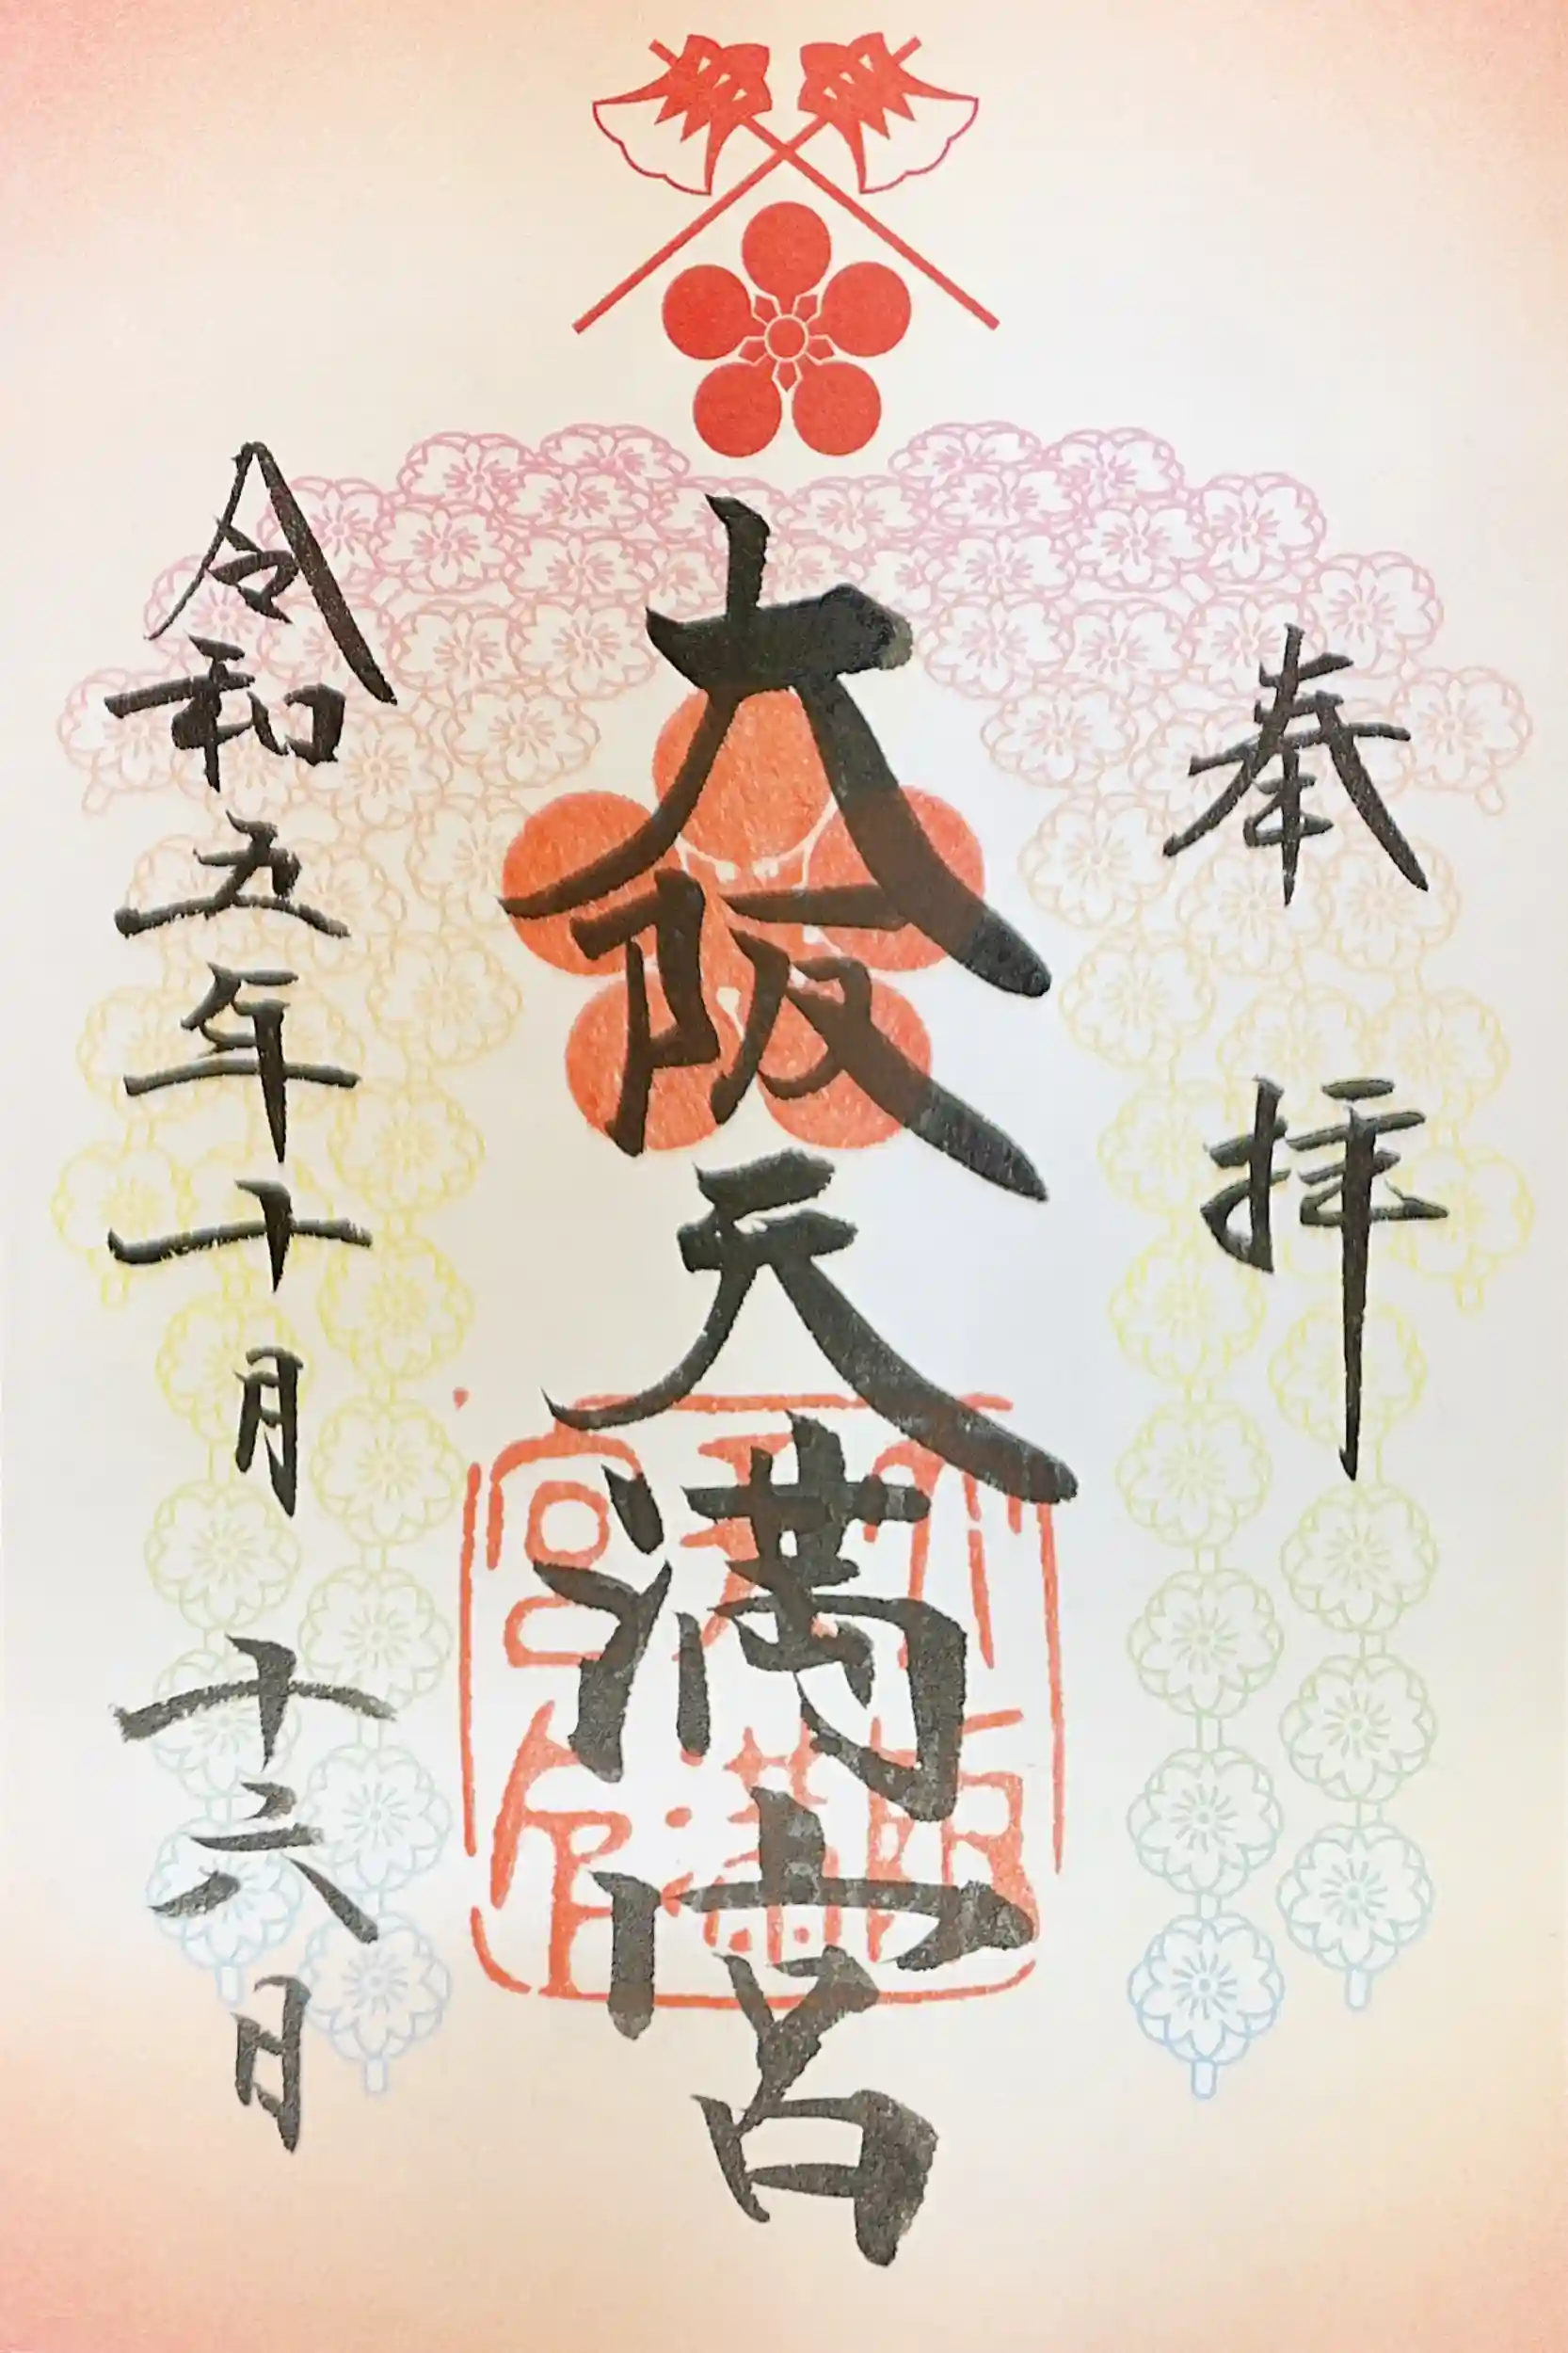 奉拝
大阪天満宮
令和五年十月十六日
大阪
天満
宮印